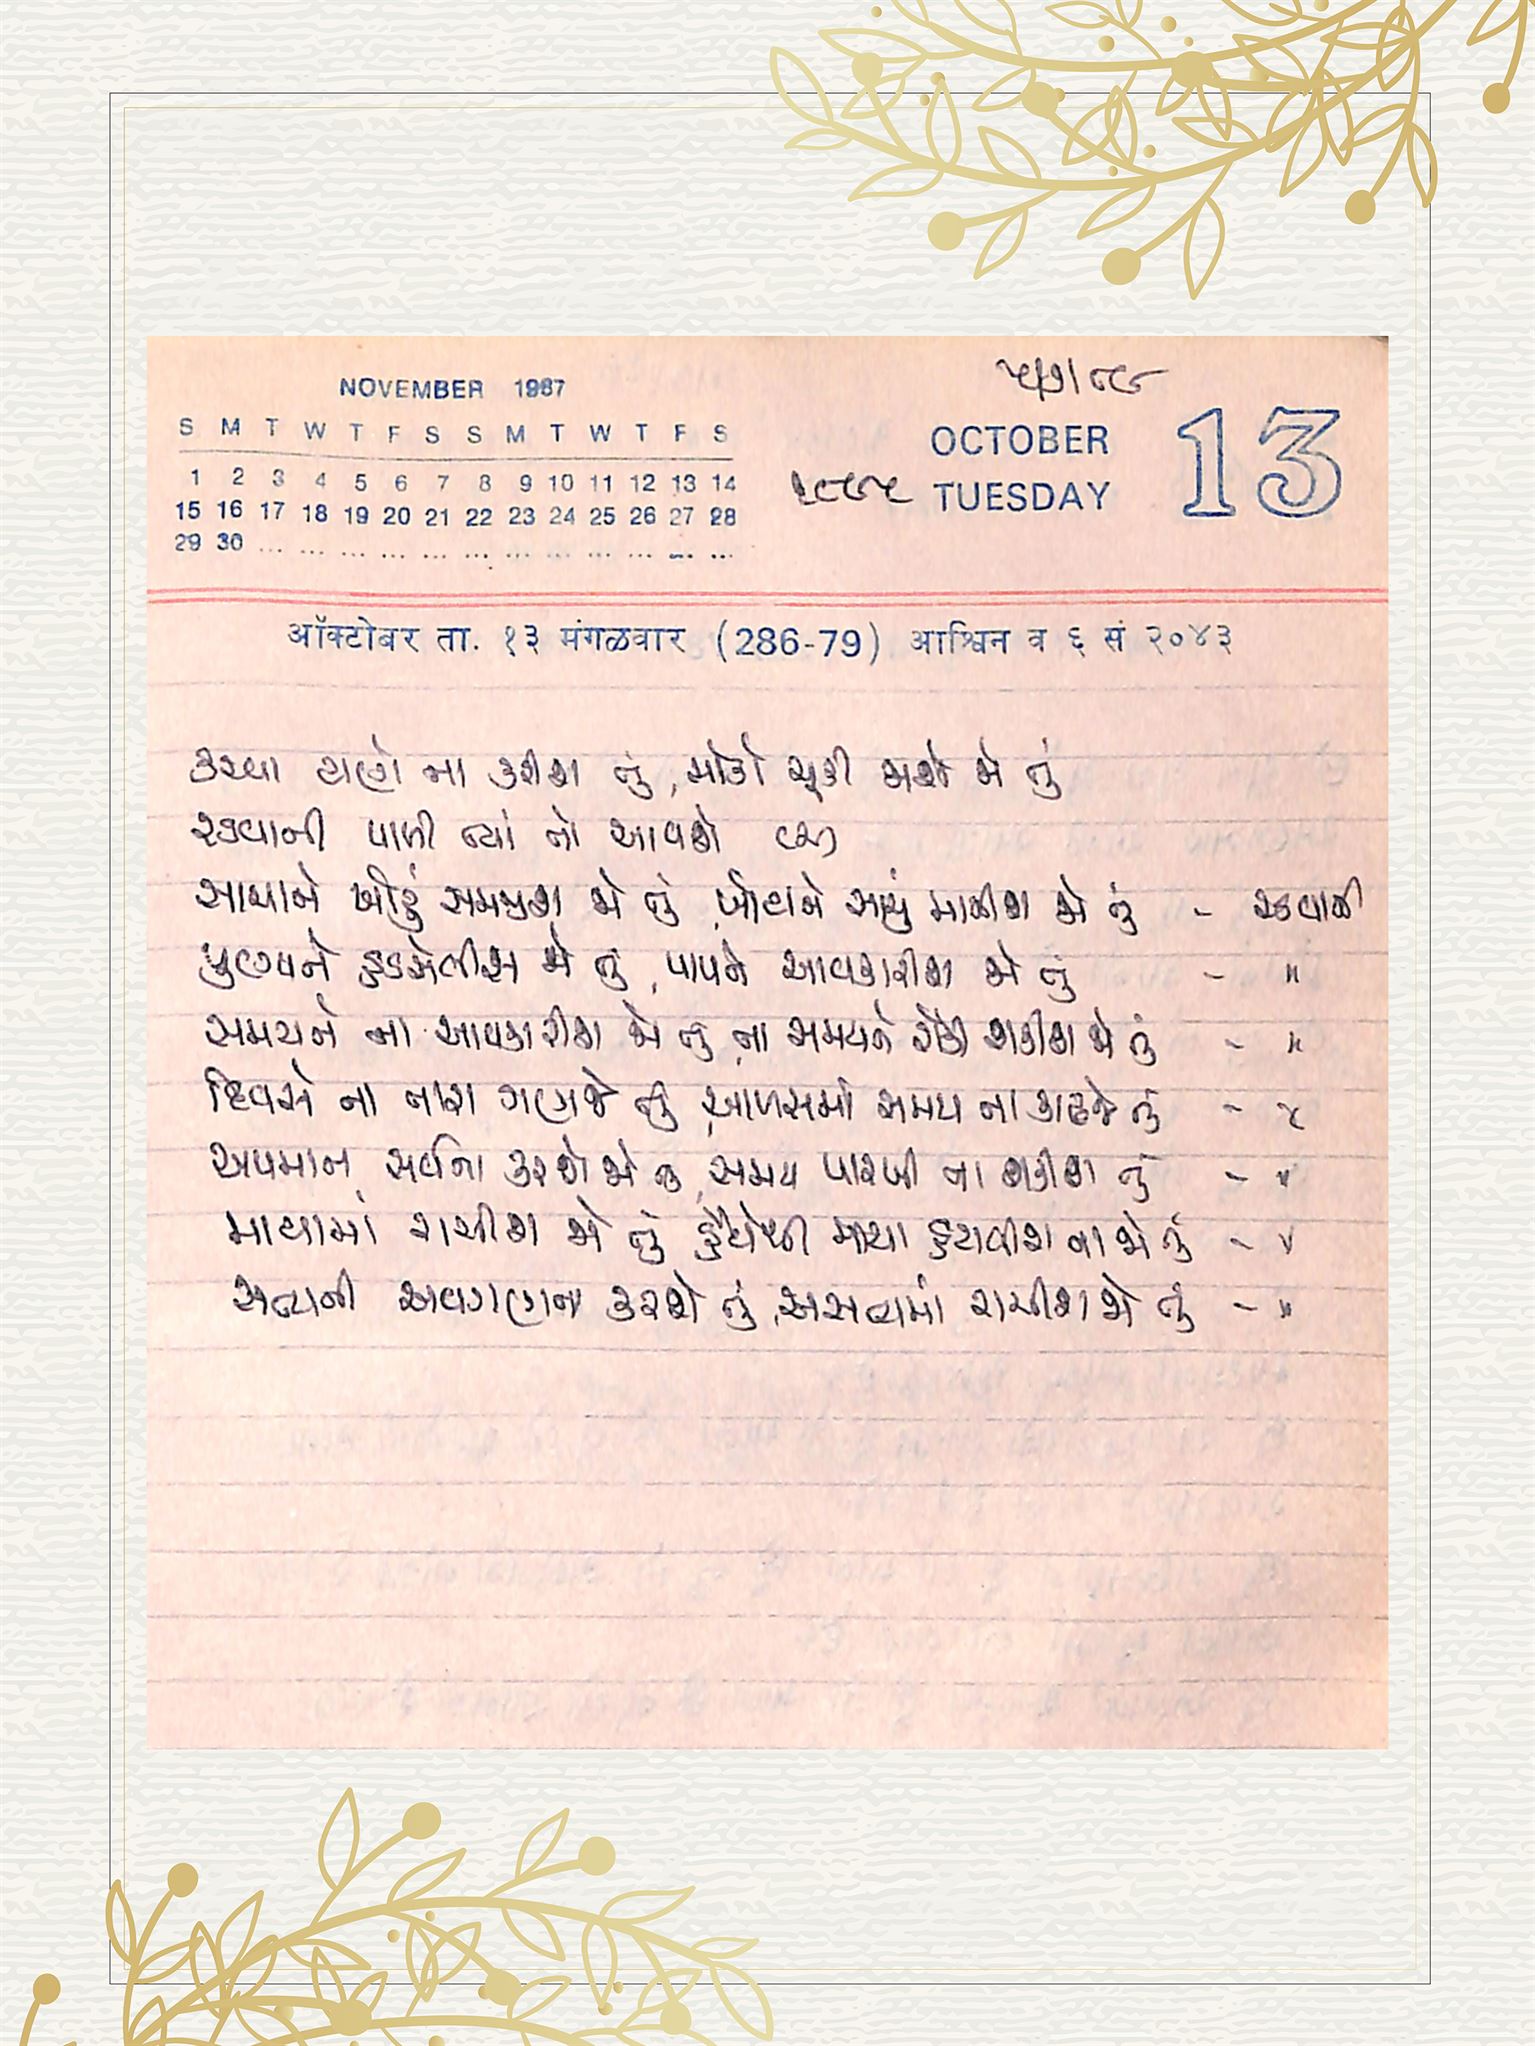 NOVEMBER 1987
S M T W T F S S M T W T F S
1 2 3 4 5 6 7 8 9 10 11 12 13 14
15 16 17 18 19 20 21 22 23 24 25 26 27 28
29 30 ... ... ... ... ... ... ... ... ... ... ... ...
OCTOBER
TUESDAY
13
ऑक्टोबर ता. १३ मंगळवार (286-79) आश्विन व ६ सं २०४३
કરવા ટાણે ના કરીશ તું, મોકો ચૂકી જાશે જે તું
રડવાની પાળી ત્યાં તો આવશે (૨)
સાચાને ખોટું સમજીશ જો તું, ખોટાને સાચું માનીશ જો તું - રડવાની
પુણ્યને હડસેલીશ જો તું, પાપને આવકારીશ જો તું - "
સમયને ના આવકારીશ જો તું, ના સમયને રોકી શકીશ જો તું - "
દિવસે ના તારા ગણજે તું, આળસમાં સમય ના કાઢજે તું - "
અપમાન સર્વના કરશે જો તું, સમય પારખી ના શકીશ તું - "
માયામાં રાચીશ જો તું, હૈયેથી માયા હટાવીશ ના જો તું - "
સત્યની અવગણના કરશે તું, અસત્યમાં રાચીશ જો તું - "